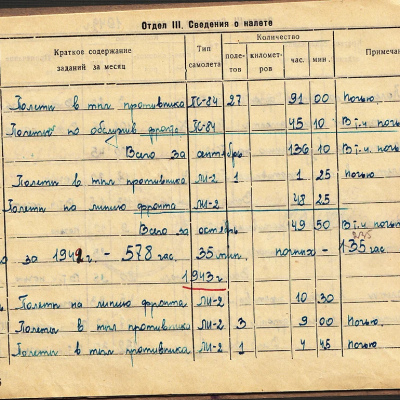 Отдел III. Сведения о налете
Краткое содержание заданий за месяц
Тип самолета
Количество
поле-тов
километ-ров
час.
мин.
Примеча
Полеты в тыл противника ПС-84 27 91 00 Ночью.
Полеты по обслужив. фронта ПС-84 45 10 В т.ч. ночью
Всего за сентябрь 136 10 В т.ч. ночью
Полеты в тыл противника ЛИ-2 1 1 25 Ночью
Полеты на линию фронта ЛИ-2 48 25
Всего за октябрь 49 50 В т.ч. ночью
за 1942 г. - 578 час. 35 мин. ночных - 135 час
1943 г.
Полеты на линию фронта ЛИ-2 10 30
Полеты в тыл противника ЛИ-2 3 9 00 Ночью.
Полеты в тыл противника ЛИ-2 1 4 45 Ночью.